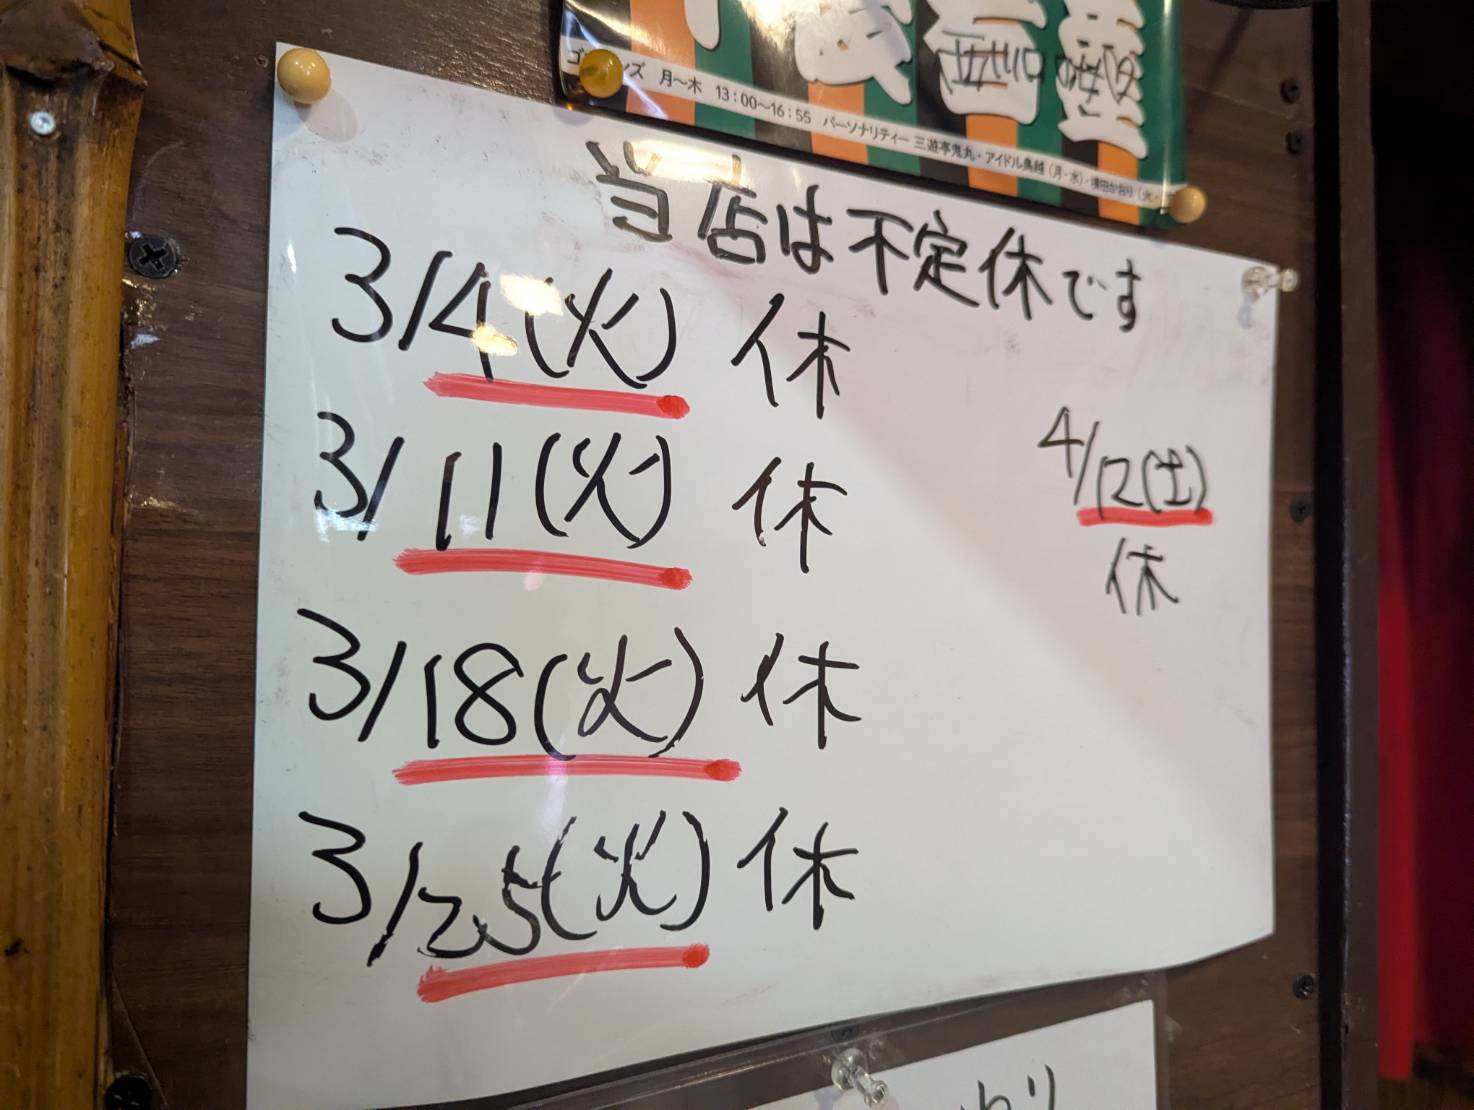 月～木 13:00～16:55 パーソナリティー 三遊亭鬼丸・アイドル鳥越（月・水）・
当店は不定休です
3/4(火) 休
3/11(火) 休
3/18(火) 休
3/25(火) 休
4/12(土)
休